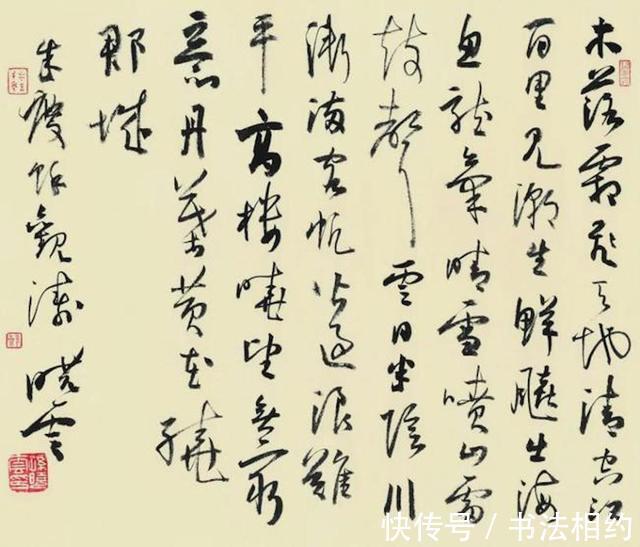 木落霜飛天地清空江
百里見潮生鮮飈出海
魚龍氣晴雪噴山雷
鼓聲雲日半陰川
漸滿客帆皆過浪難
平高樓曉望無窮
意丹葉黄花繞
郡城
朱慶餘觀濤 曉雲
快传号 / 书法相约